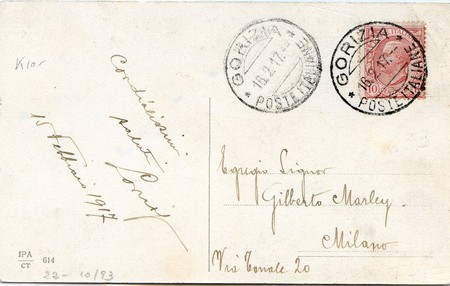 K10r
GORIZIA
16.2.17.
* POSTE ITALIANE *
GORIZIA
16.2.17.
* POSTE ITALIANE *
10
Cordialissimi
saluti
15 Febbraio 1917
Egregio Signor
Gilberto Marley.
Milano
Via Tonale 20
IPA
CT
614
22- 10/93